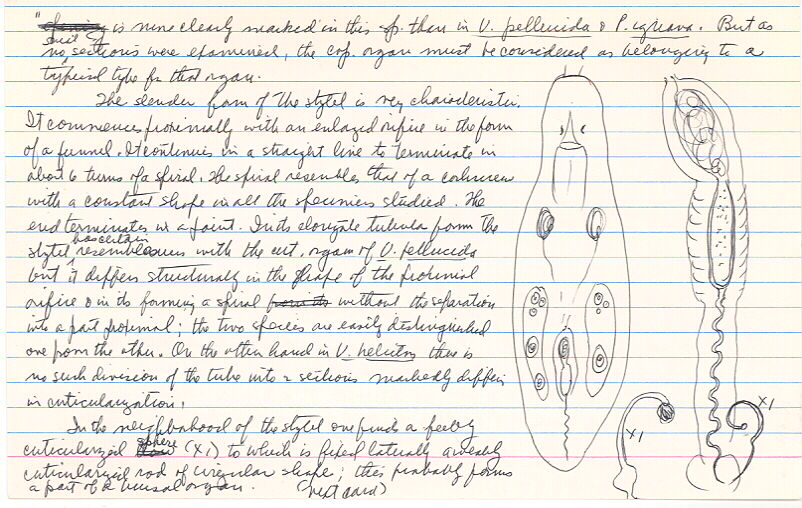 is more clearly marked in this sp. than in V. pellucida & P. ignava. But as
no such sections were examined, the cop. organ must be considered as belonging to a
typical type for that organ.
The slender form of the stylet is very characteristic.
It commences proximally with an enlarged orifice in the form
of a funnel. It continues in a straight line to terminate in
about 6 turns of a spiral. The spiral resembles that of a corkscrew
with a constant shape in all the specimens studied. The
end terminates in a point. In its elongate tubular form the
stylet has certain resemblances with the cut. organ of V. pellucida
but it differs structurally in the shape of the proximal
orifice & in its forming a spiral without the separation
into a part proximal; the two species are easily distinguished
one from the other. On the other hand in V. there is
no such division of the tube into 2 sections markedly differing
in cuticularization.
In the neighborhood of the stylet one finds a feebly
cuticularized sphere (X1) to which is fixed laterally a weakly
cuticularized rod of irregular shape; this probably forms
a part of a bursal organ. (next card)
X1
X1